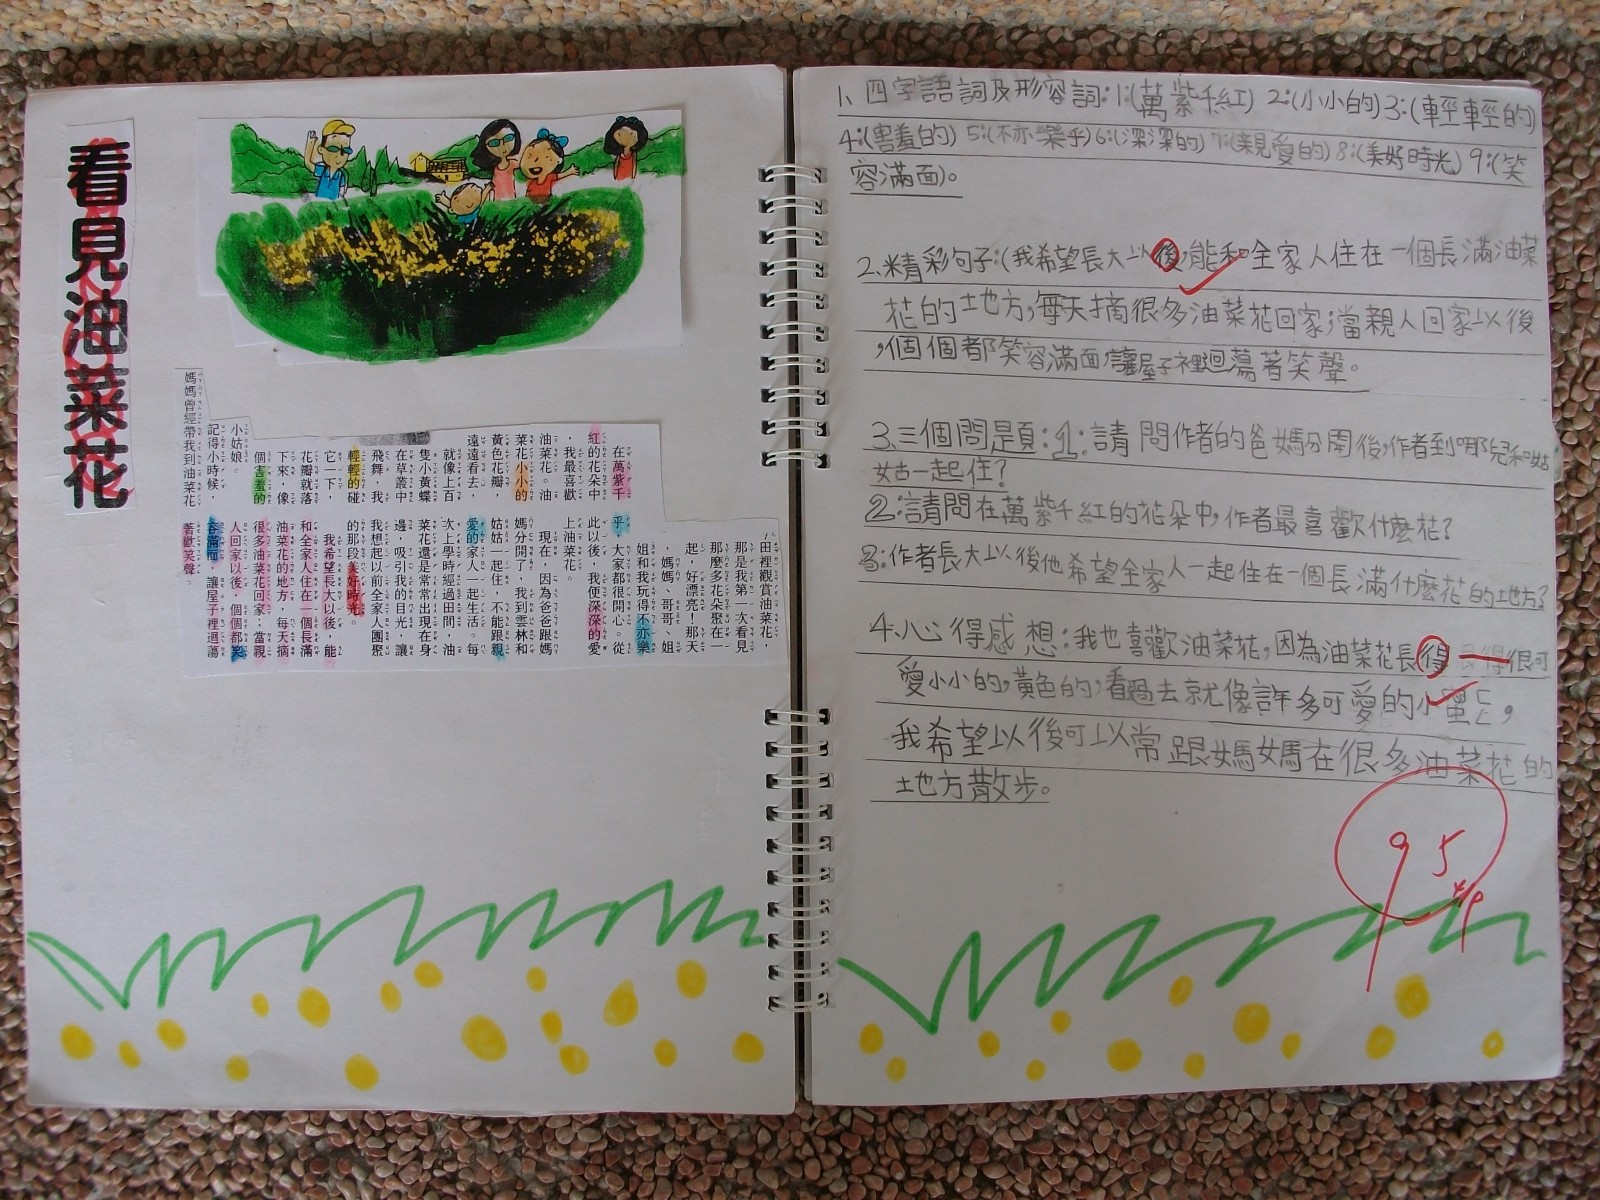 看見油菜花
在萬紫千
紅的花朵中
，我最喜歡
油菜花。油
菜花小小的
黃色花瓣，
遠遠看去，
就像上百
隻小黃蝶
在草叢中
飛舞，我
輕輕的碰
它一下，
花瓣就落
下來，像
個害羞的
小姑娘。
記得小時候，
媽媽曾經帶我到油菜花
田裡觀賞油菜花，
那是我第一次看見
那麼多花朵聚在一
起，好漂亮！那天
，媽媽、哥哥、姐
姐和我玩得不亦樂
乎，大家都很開心。從
此以後，我便深深的愛
上油菜花。
現在，因為爸爸跟媽
媽分開了，我到雲林和
姑姑一起住，不能跟親
愛的家人一起生活。每
次上學時經過田間，油
菜花還是常常出現在身
邊，吸引我的目光，讓
我想起以前全家人團聚
的那段美好時光。
我希望長大以後，能
和全家人住在一個長滿
油菜花的地方，每天摘
很多油菜花回家；當親
人回家以後，個個都笑
容滿面，讓屋子裡迴蕩
著歡笑聲。
1、四字語詞及形容詞:1:(萬紫千紅) 2:(小小的)3:(輕輕的)
4:(害羞的) 5:(不亦樂乎)6:(深深的)7:(親愛的)8:(美好時光)9:(笑
容滿面)。
2、精彩句子:(我希望長大以後,能和全家人住在一個長滿油菜
花的土地方,每天摘很多油菜花回家;當親人回家以後
,個個都笑容滿面,讓屋子裡迴蕩著笑聲。
3、三個問題:1:請問作者的爸媽分開後,作者到哪兒和姑
姑一起住?
2:請問在萬紫千紅的花朵中,作者最喜歡什麼花?
3:作者長大以後他希望全家人一起住在一個長滿什麼花的地方?
4、心得感想:我也喜歡油菜花,因為油菜花長得很可
愛小小的,黃色的,看過去就像許多可愛的小蜜,
我希望以後可以常跟媽媽在很多油菜花的
地方散步。
95